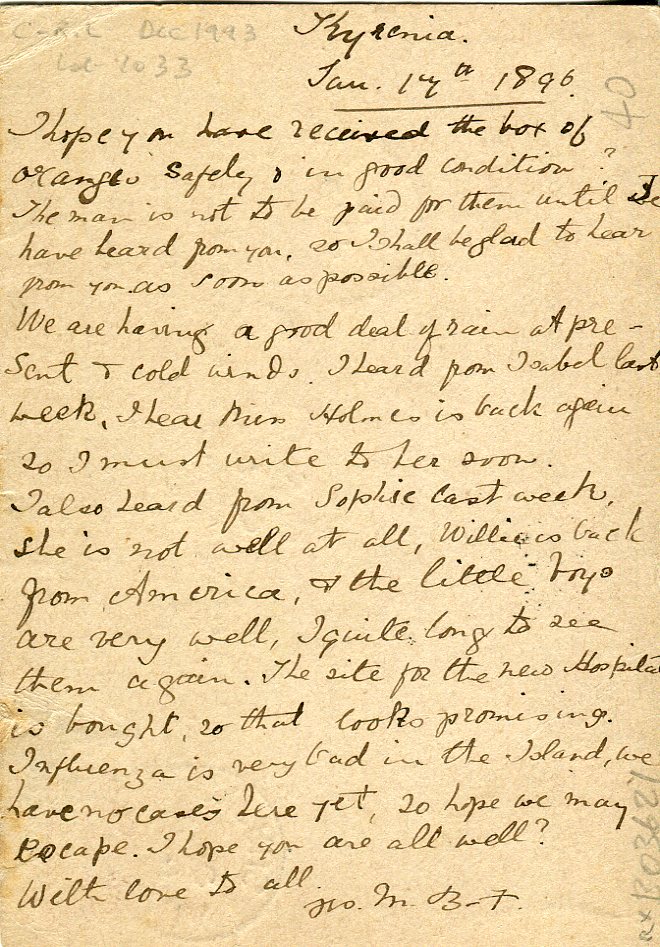 C-R.L Dec 1993
Lot 2033
40
Kyrenia.
Jan. 17th 1896.
I hope you have received the box of
oranges safely & in good condition?
The man is not to be paid for them until I
have heard from you, so I shall be glad to hear
from you as soon as possible.
We are having a good deal of rain at pre-
sent & cold winds. I heard from Isabel last
week, I hear Miss Holmes is back again
so I must write to her soon.
I also heard from Sophie last week,
she is not well at all, Willie is back
from America, & the little boys
are very well, I quite long to see
them again. The site for the new Hospital
is bought, so that looks promising.
Influenza is very bad in the Island, we
have no cases here yet, so hope we may
escape. I hope you are all well?
With love to all
M. B-F.